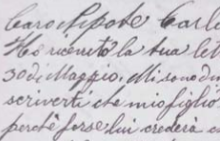 Caro Nipote Carl
Ho ricevuto la tua let
30 di Maggio. Mi sono d
scriverti che mio figlio
perchè forse lui crederà